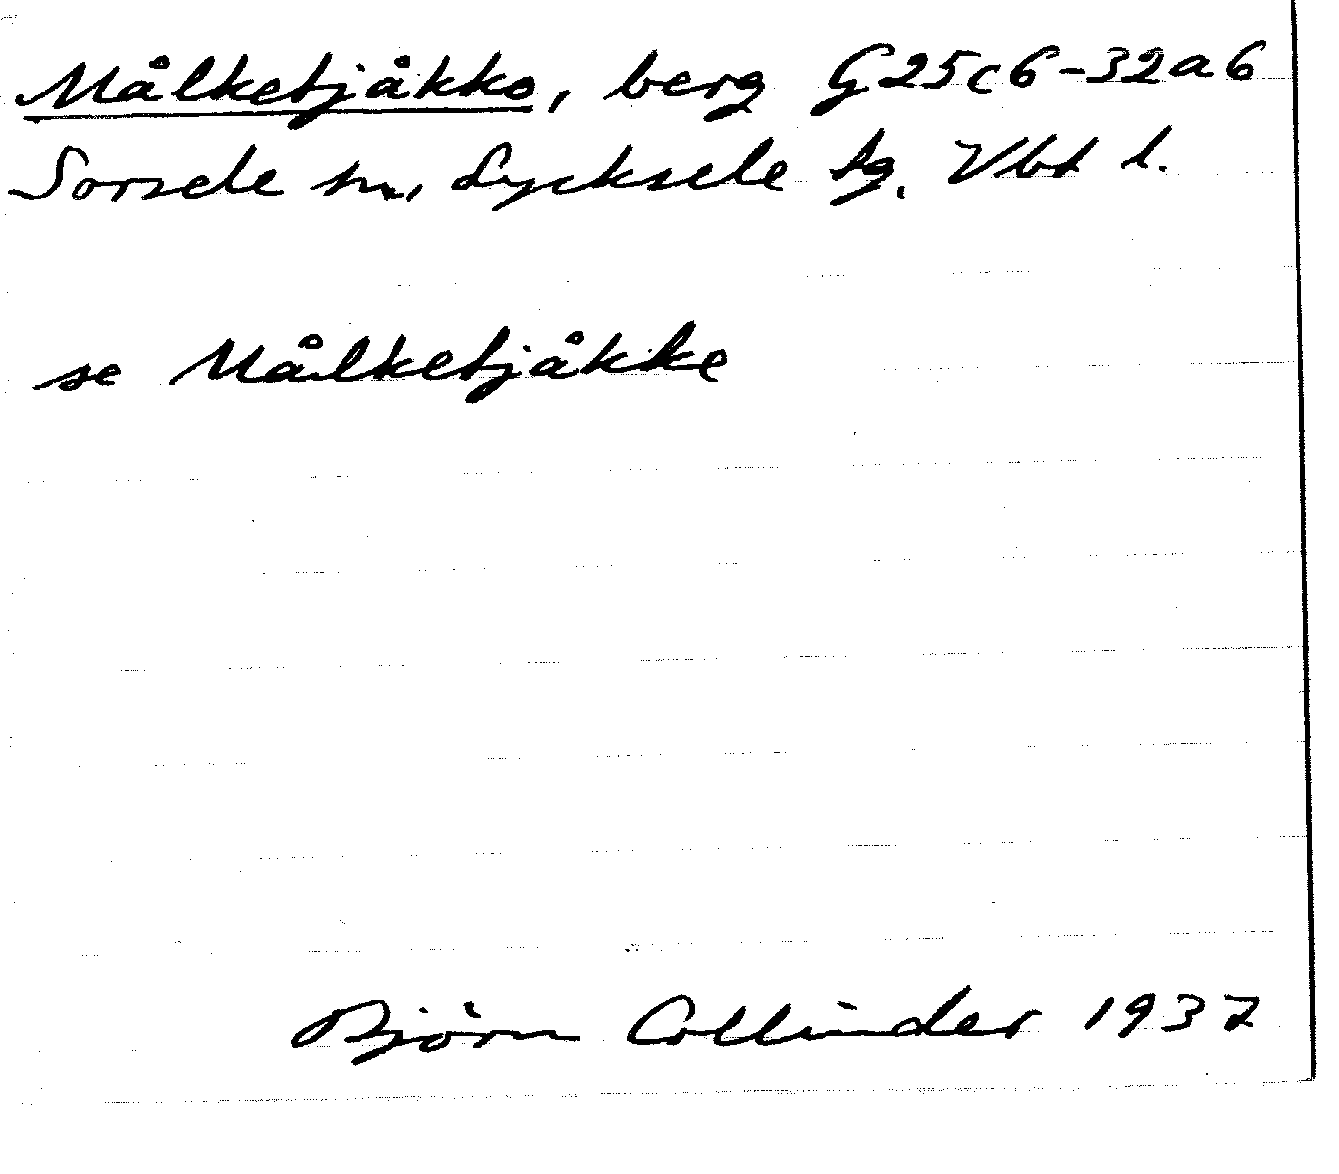 Målketjåkko, berg G25c6-32a6
Sorsele sn, Lycksele tg. Vbt l.
se Målketjåkke
Björn Collinder 1937